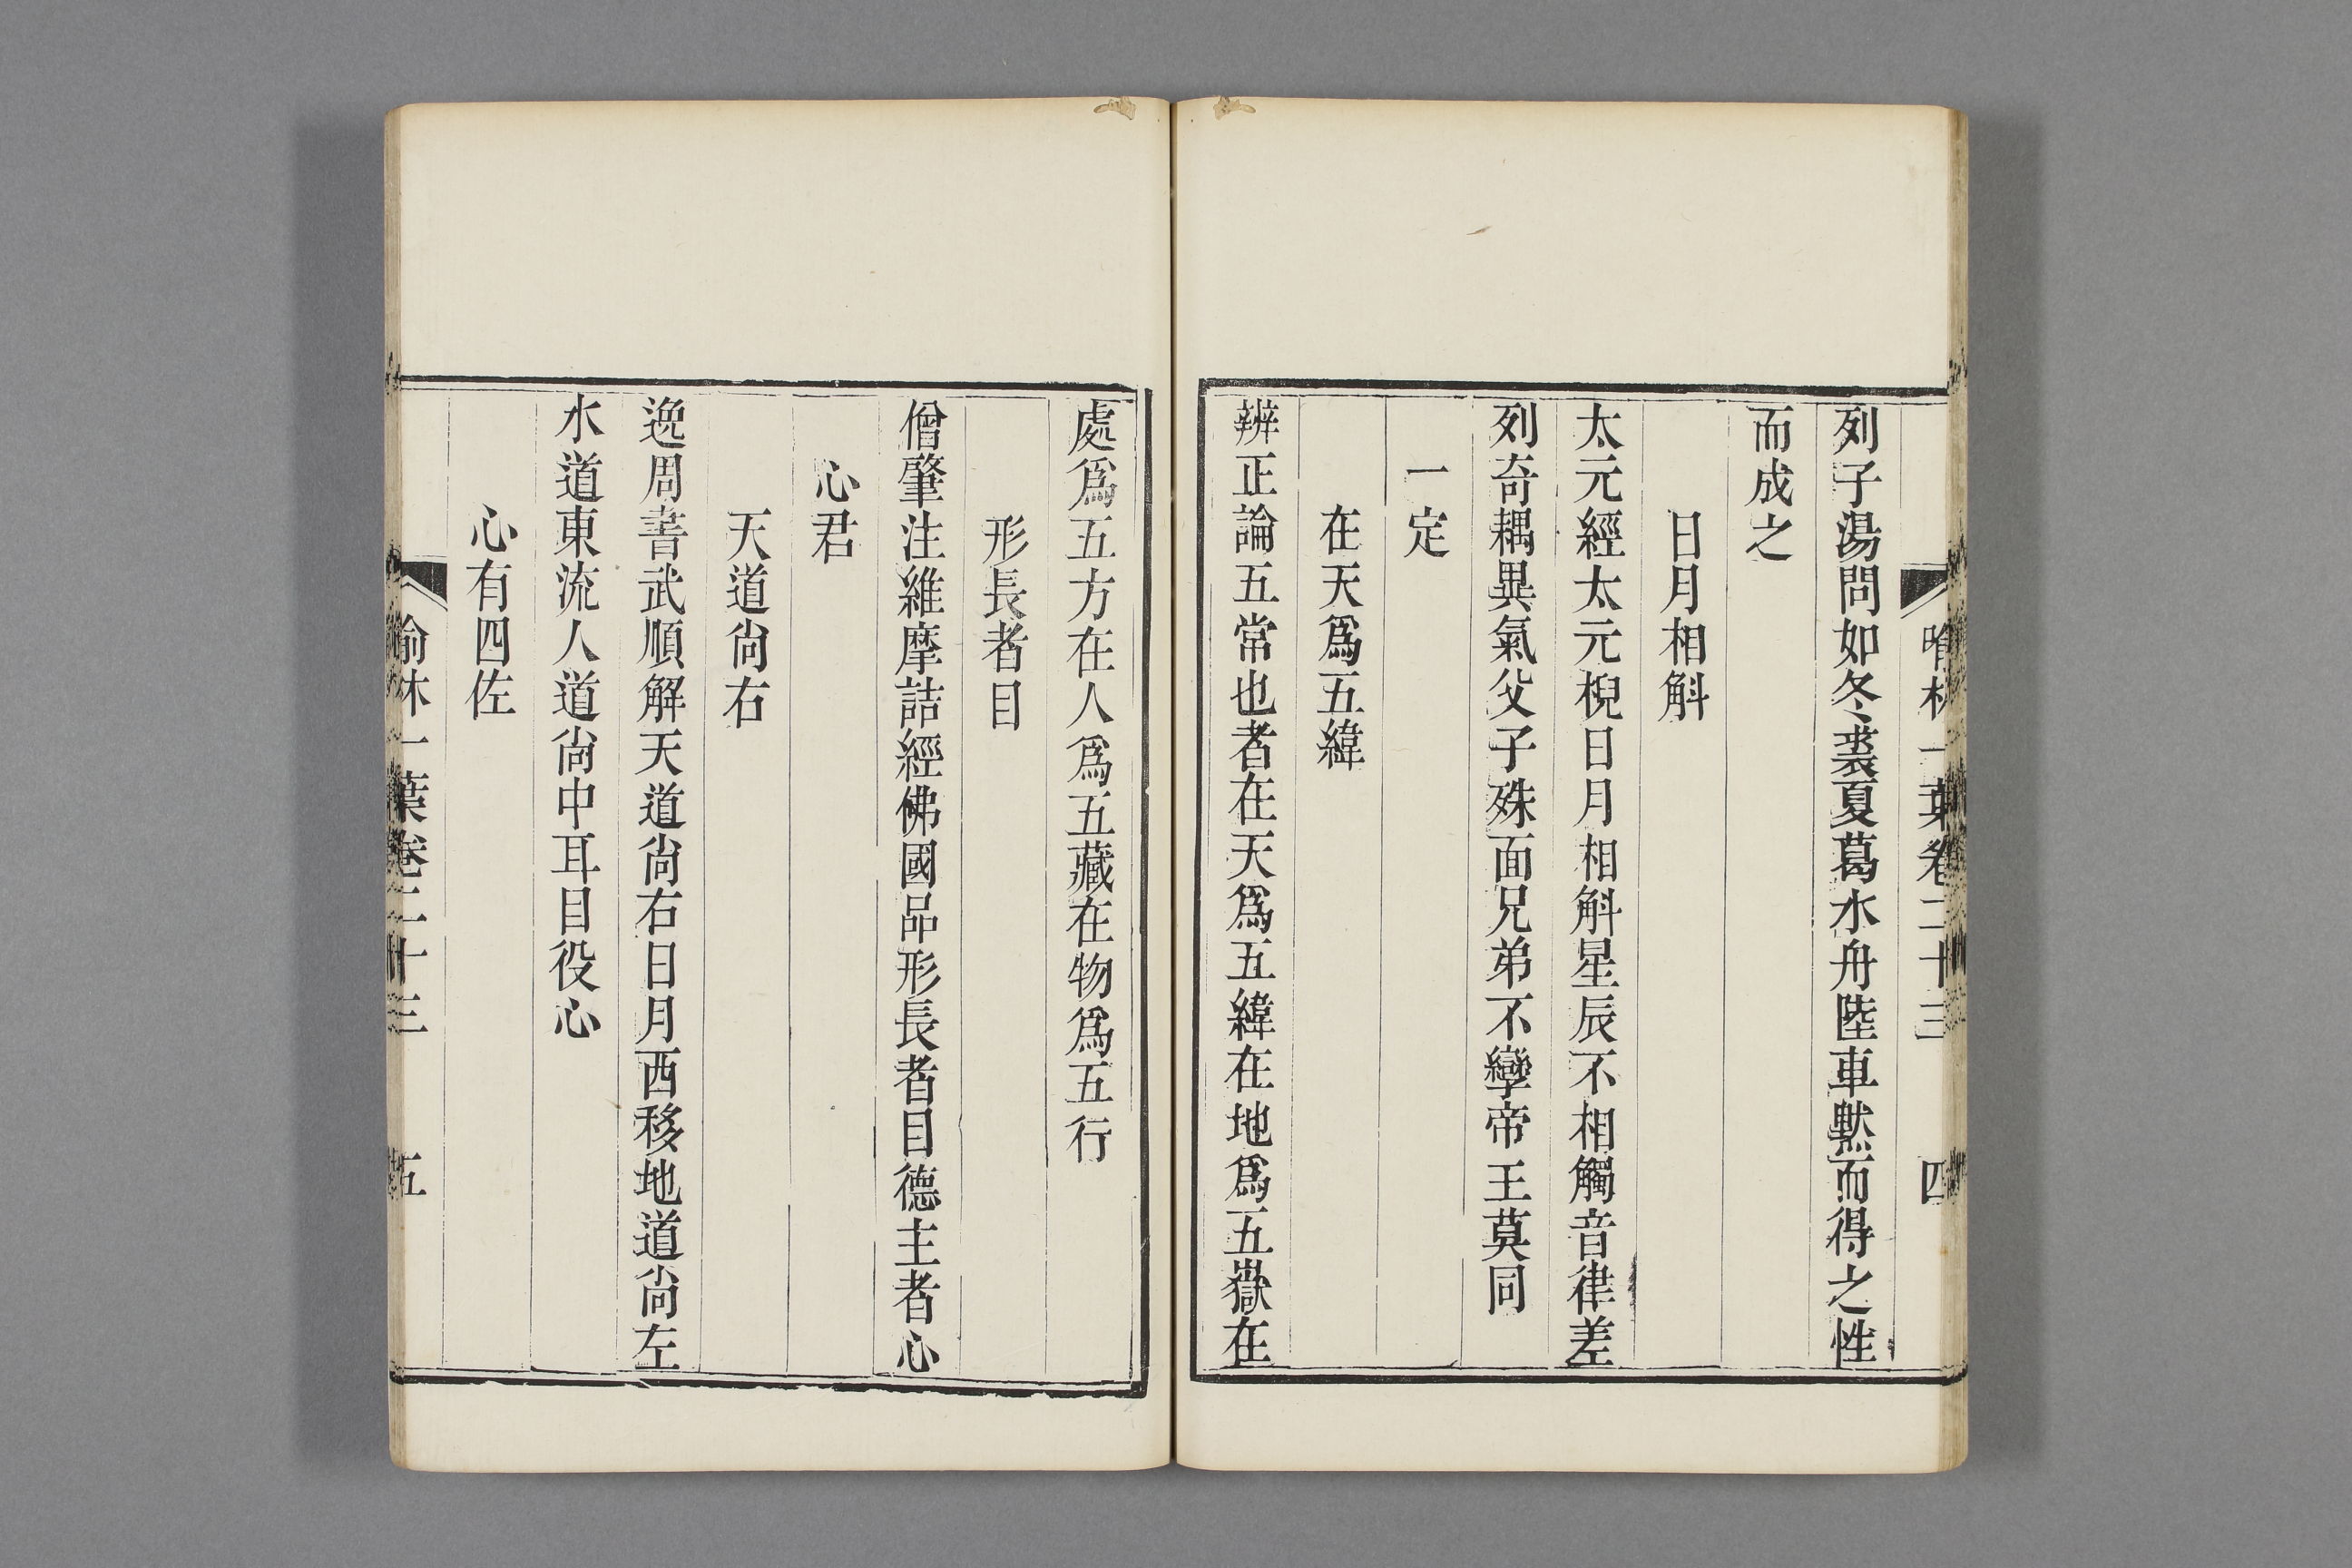 喻林一葉卷二十三 四
列子湯問如冬裘夏葛水舟陸車默而得之性
而成之
日月相斛
太元經太元棿日月相斛星辰不相觸音律差
列奇耦異氣父子殊面兄弟不孿帝王莫同
一定
在天爲五緯
辨正論五常也者在天爲五緯在地爲五嶽在
處爲五方在人爲五藏在物爲五行
形長者目
僧肇注維摩詰經佛國品形長者目德主者心
心君
天道尙右
逸周書武順解天道尙右日月西移地道尙左
水道東流人道尙中耳目役心
心有四佐
喻林一葉卷二十三 五